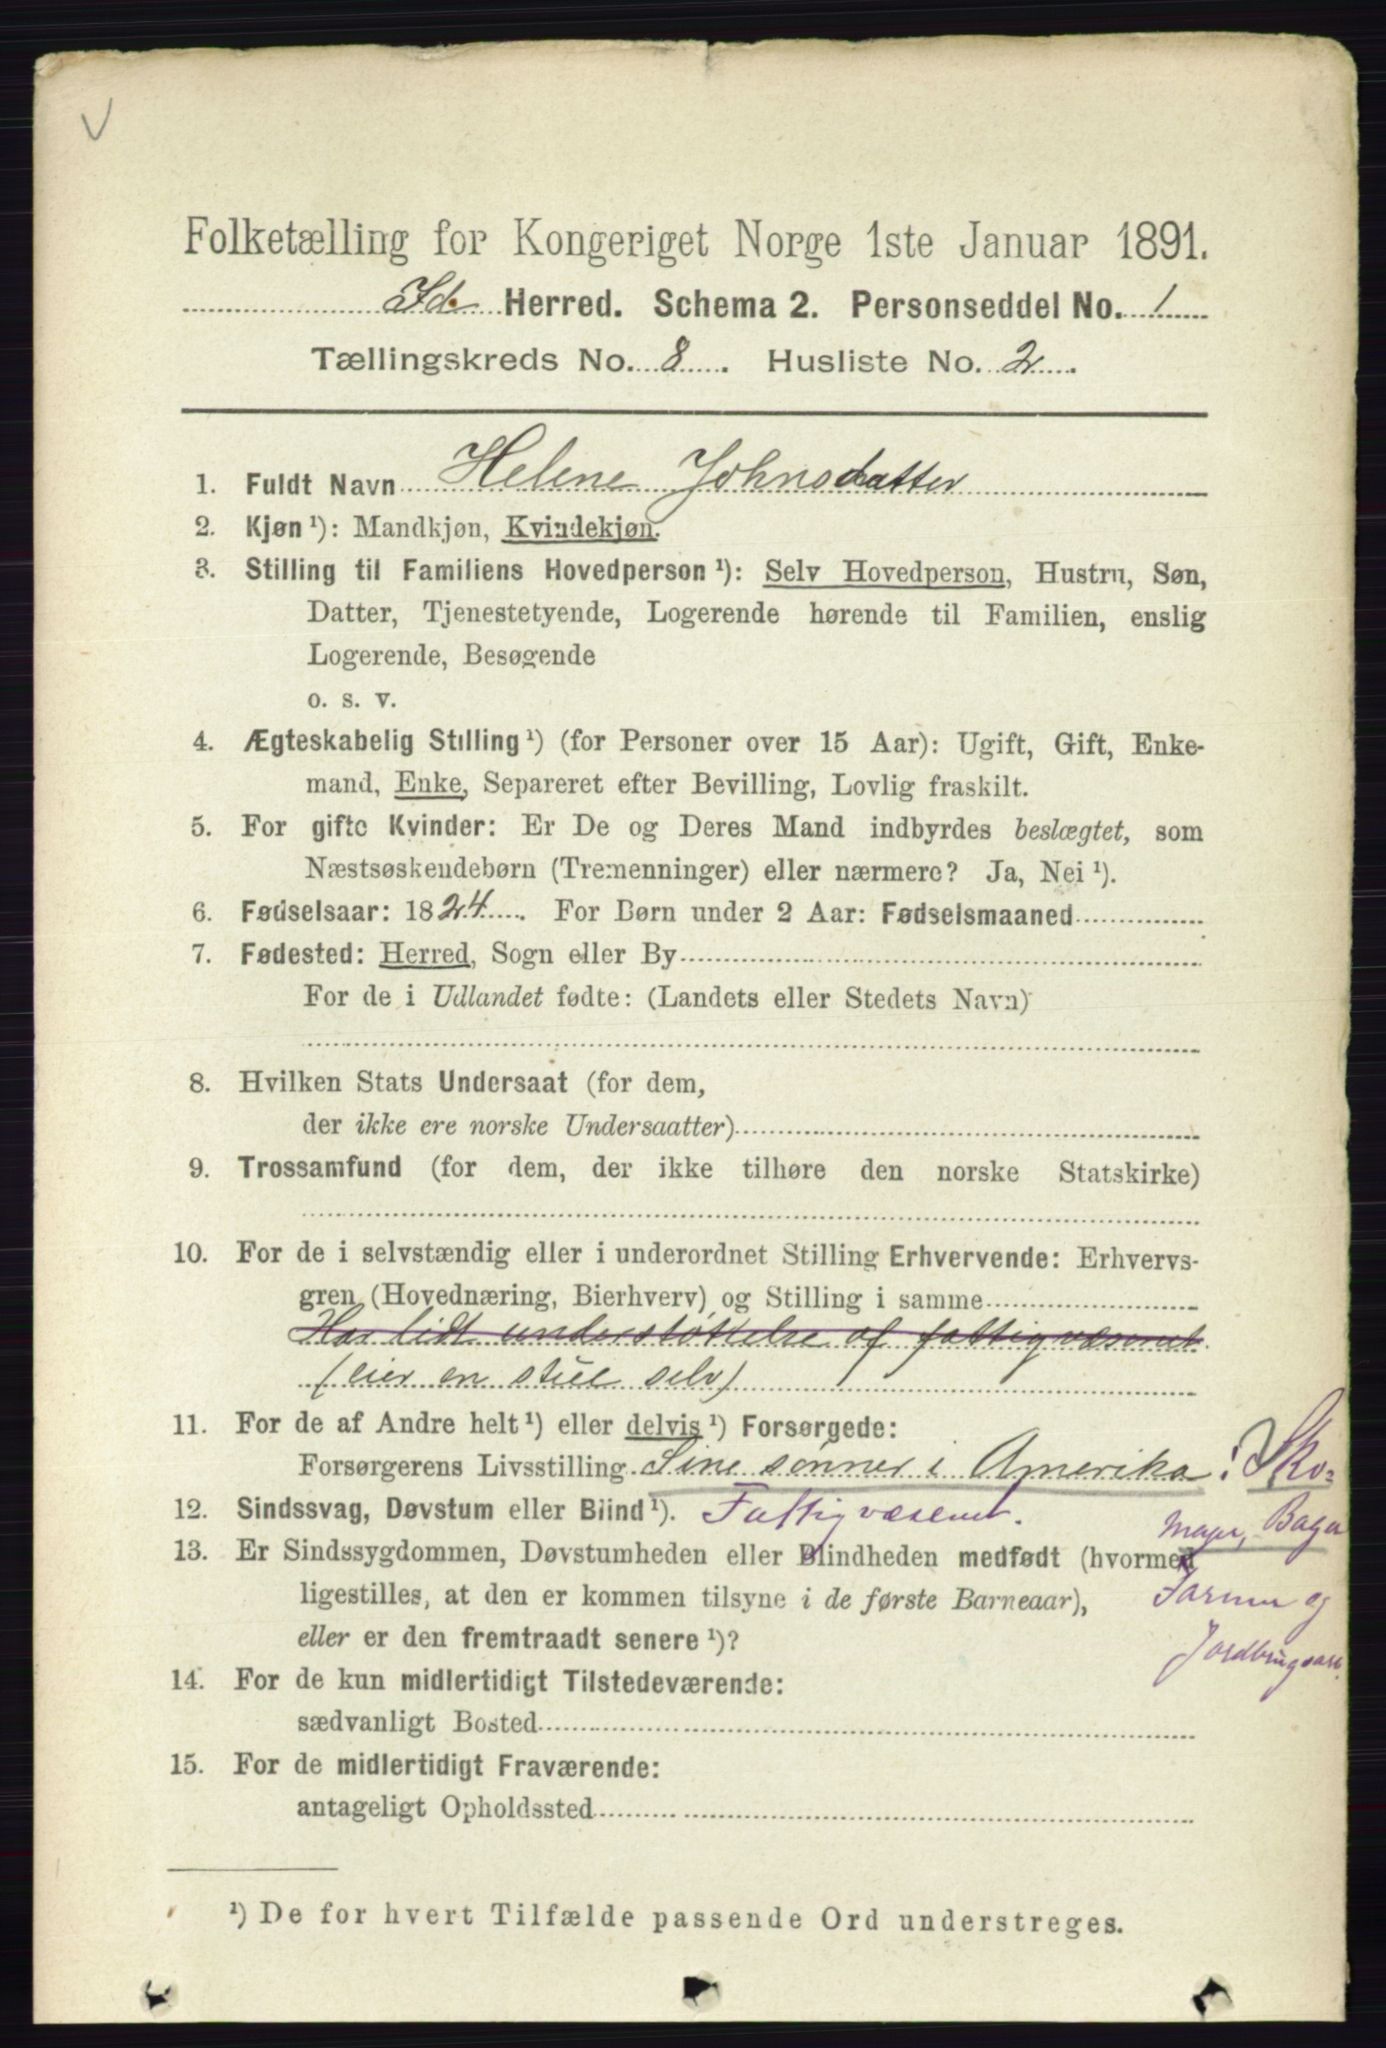 V
Folketælling for Kongeriget Norge 1ste Januar 1891.
Id. Herred. Schema 2. Personseddel No. 1
Tællingskreds No. 8. Husliste No. 2.
1. Fuldt Navn Helene Johnsdatter
2. Kjøn ¹): Mandkjøn, Kvindekjøn.
3. Stilling til Familiens Hovedperson ¹): Selv Hovedperson, Hustru, Søn,
Datter, Tjenestetyende, Logerende hørende til Familien, enslig
Logerende, Besøgende
o. s. v.
4. Ægteskabelig Stilling ¹) (for Personer over 15 Aar): Ugift, Gift, Enke-
mand, Enke, Separeret efter Bevilling, Lovlig fraskilt.
5. For gifte Kvinder: Er De og Deres Mand indbyrdes beslægtet, som
Næstsøskendebørn (Tremenninger) eller nærmere? Ja, Nei ¹).
6. Fødselsaar: 1824. For Børn under 2 Aar: Fødselsmaaned
7. Fødested: Herred, Sogn eller By
For de i Udlandet fødte: (Landets eller Stedets Navn)
8. Hvilken Stats Undersaat (for dem,
der ikke ere norske Undersaatter)
9. Trossamfund (for dem, der ikke tilhøre den norske Statskirke)
10. For de i selvstændig eller i underordnet Stilling Erhvervende: Erhvervs-
gren (Hovednæring, Bierhverv) og Stilling i samme
Har lidt understøttelse af fattigvæsenet
(eier en stue selv)
11. For de af Andre helt ¹) eller delvis ¹) Forsørgede:
Forsørgerens Livsstilling Sine sønner i Amerika: Sko-
mager, Baga
Farmer og
Jordbrugsarb.
12. Sindssvag, Døvstum eller Blind ¹). Fattigvæsenet.
13. Er Sindssygdommen, Døvstumheden eller Blindheden medfødt (hvormed
ligestilles, at den er kommen tilsyne i de første Barneaar),
eller er den fremtraadt senere ¹)?
14. For de kun midlertidigt Tilstedeværende:
sædvanligt Bosted
15. For de midlertidigt Fraværende:
antageligt Opholdssted
¹) De for hvert Tilfælde passende Ord understreges.